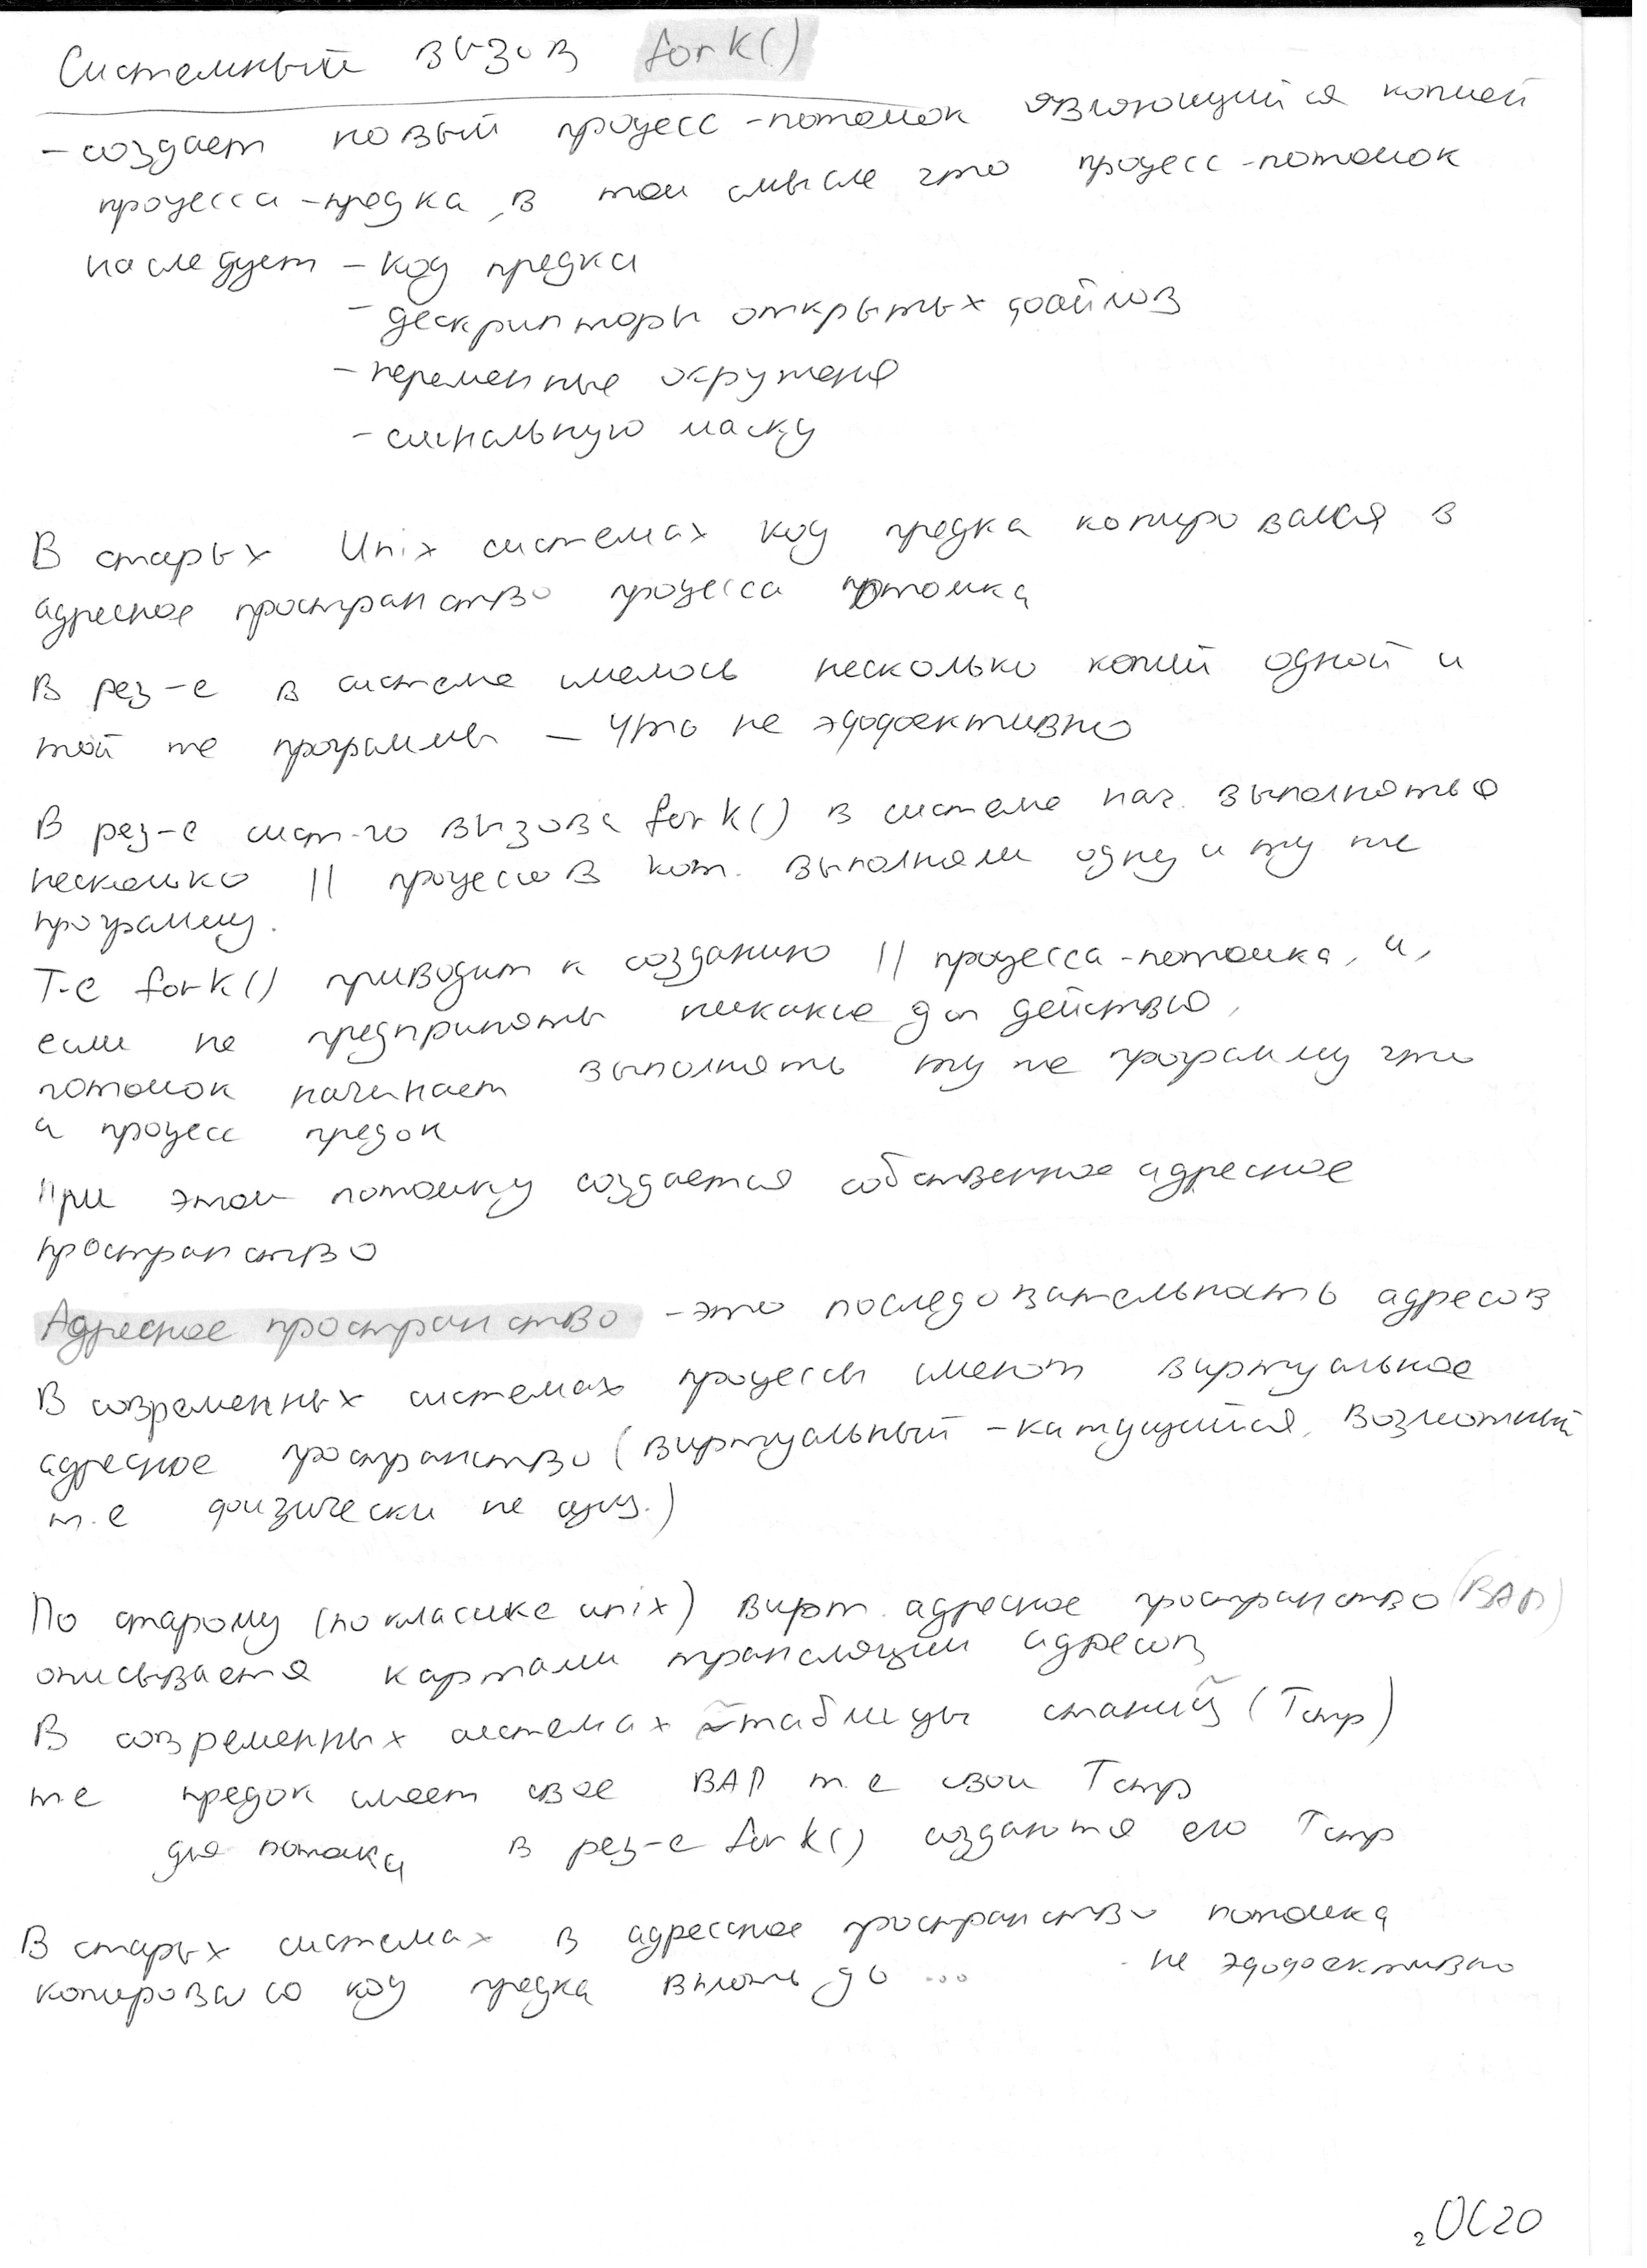 Системный вызов fork()
- создает новый процесс-потомок являющийся копией
процесса-предка, в том смысле что процесс-потомок
наследует - код предка
- дескрипторы открытых файлов
- переменные окружения
- сигнальную маску
В старых Unix системах код предка копировался в
адресное пространство процесса потомка
В рез-е в системе имелось несколько копий одной и
той же программы - что не эффективно
В рез-е сист-го вызова fork() в системе нач. выполняться
несколько || процессов кот. выполняли одну и ту же
программу.
Т-е fork() приводит к созданию || процесса-потомка, и,
если не предпринять никакие доп действия,
потомок начинает выполнять ту же программу что
и процесс предок
При этом потомку создается собственное адресное
пространство
Адресное пространство - это последовательность адресов
В современных системах процессы имеют виртуальное
адресное пространство (виртуальный - кажущийся, возможный
т.е физически не сущ.)
По старому (по класике unix) вирт. адресное пространство (ВАП)
описывается картами трансляции адресов
В современных системах ~ таблицы станиц (Тстр)
т е предок имеет свое ВАП т.е свои Тстр
для потомка в рез-е fork() создаются его Тстр
В старых системах в адресное пространство потомка
копировался код предка вплоть до ... - не эффективно
2 ОС20